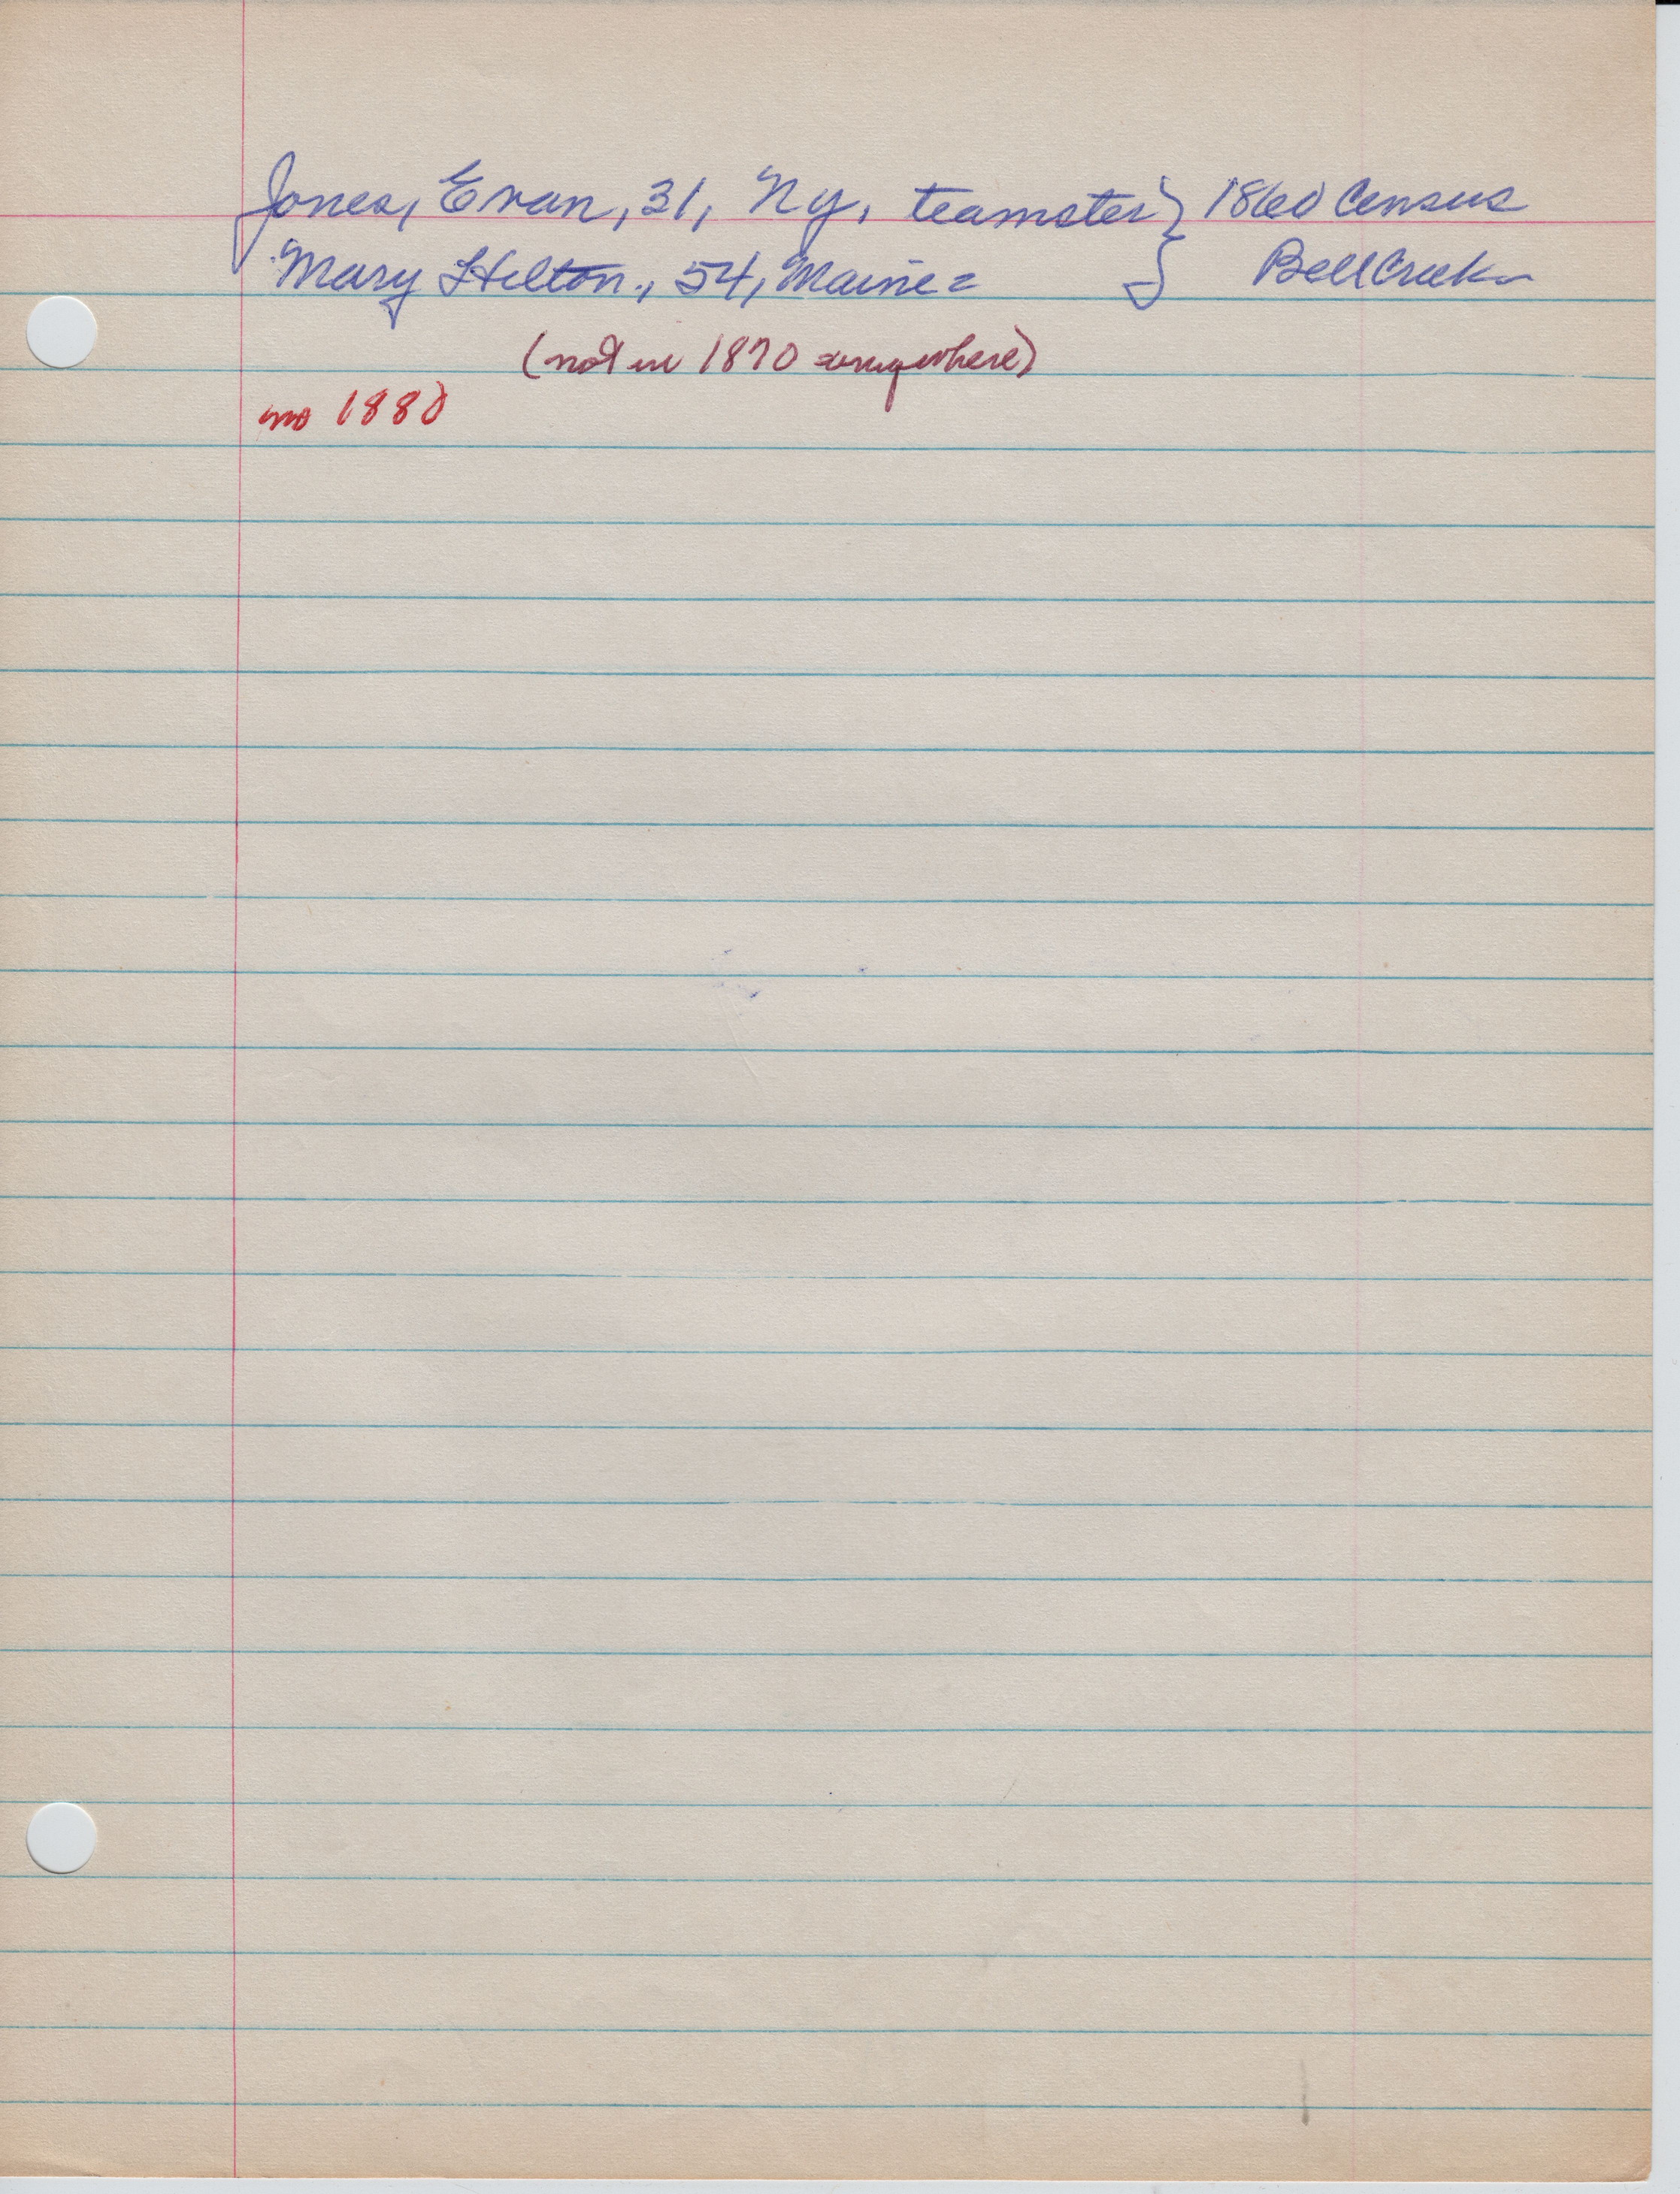 Jones, Evan, 31, Ny, teamster } 1860 Census
Mary Hilton., 54, Maine = } Bell Creek
(not in 1870 anywhere)
no 1880